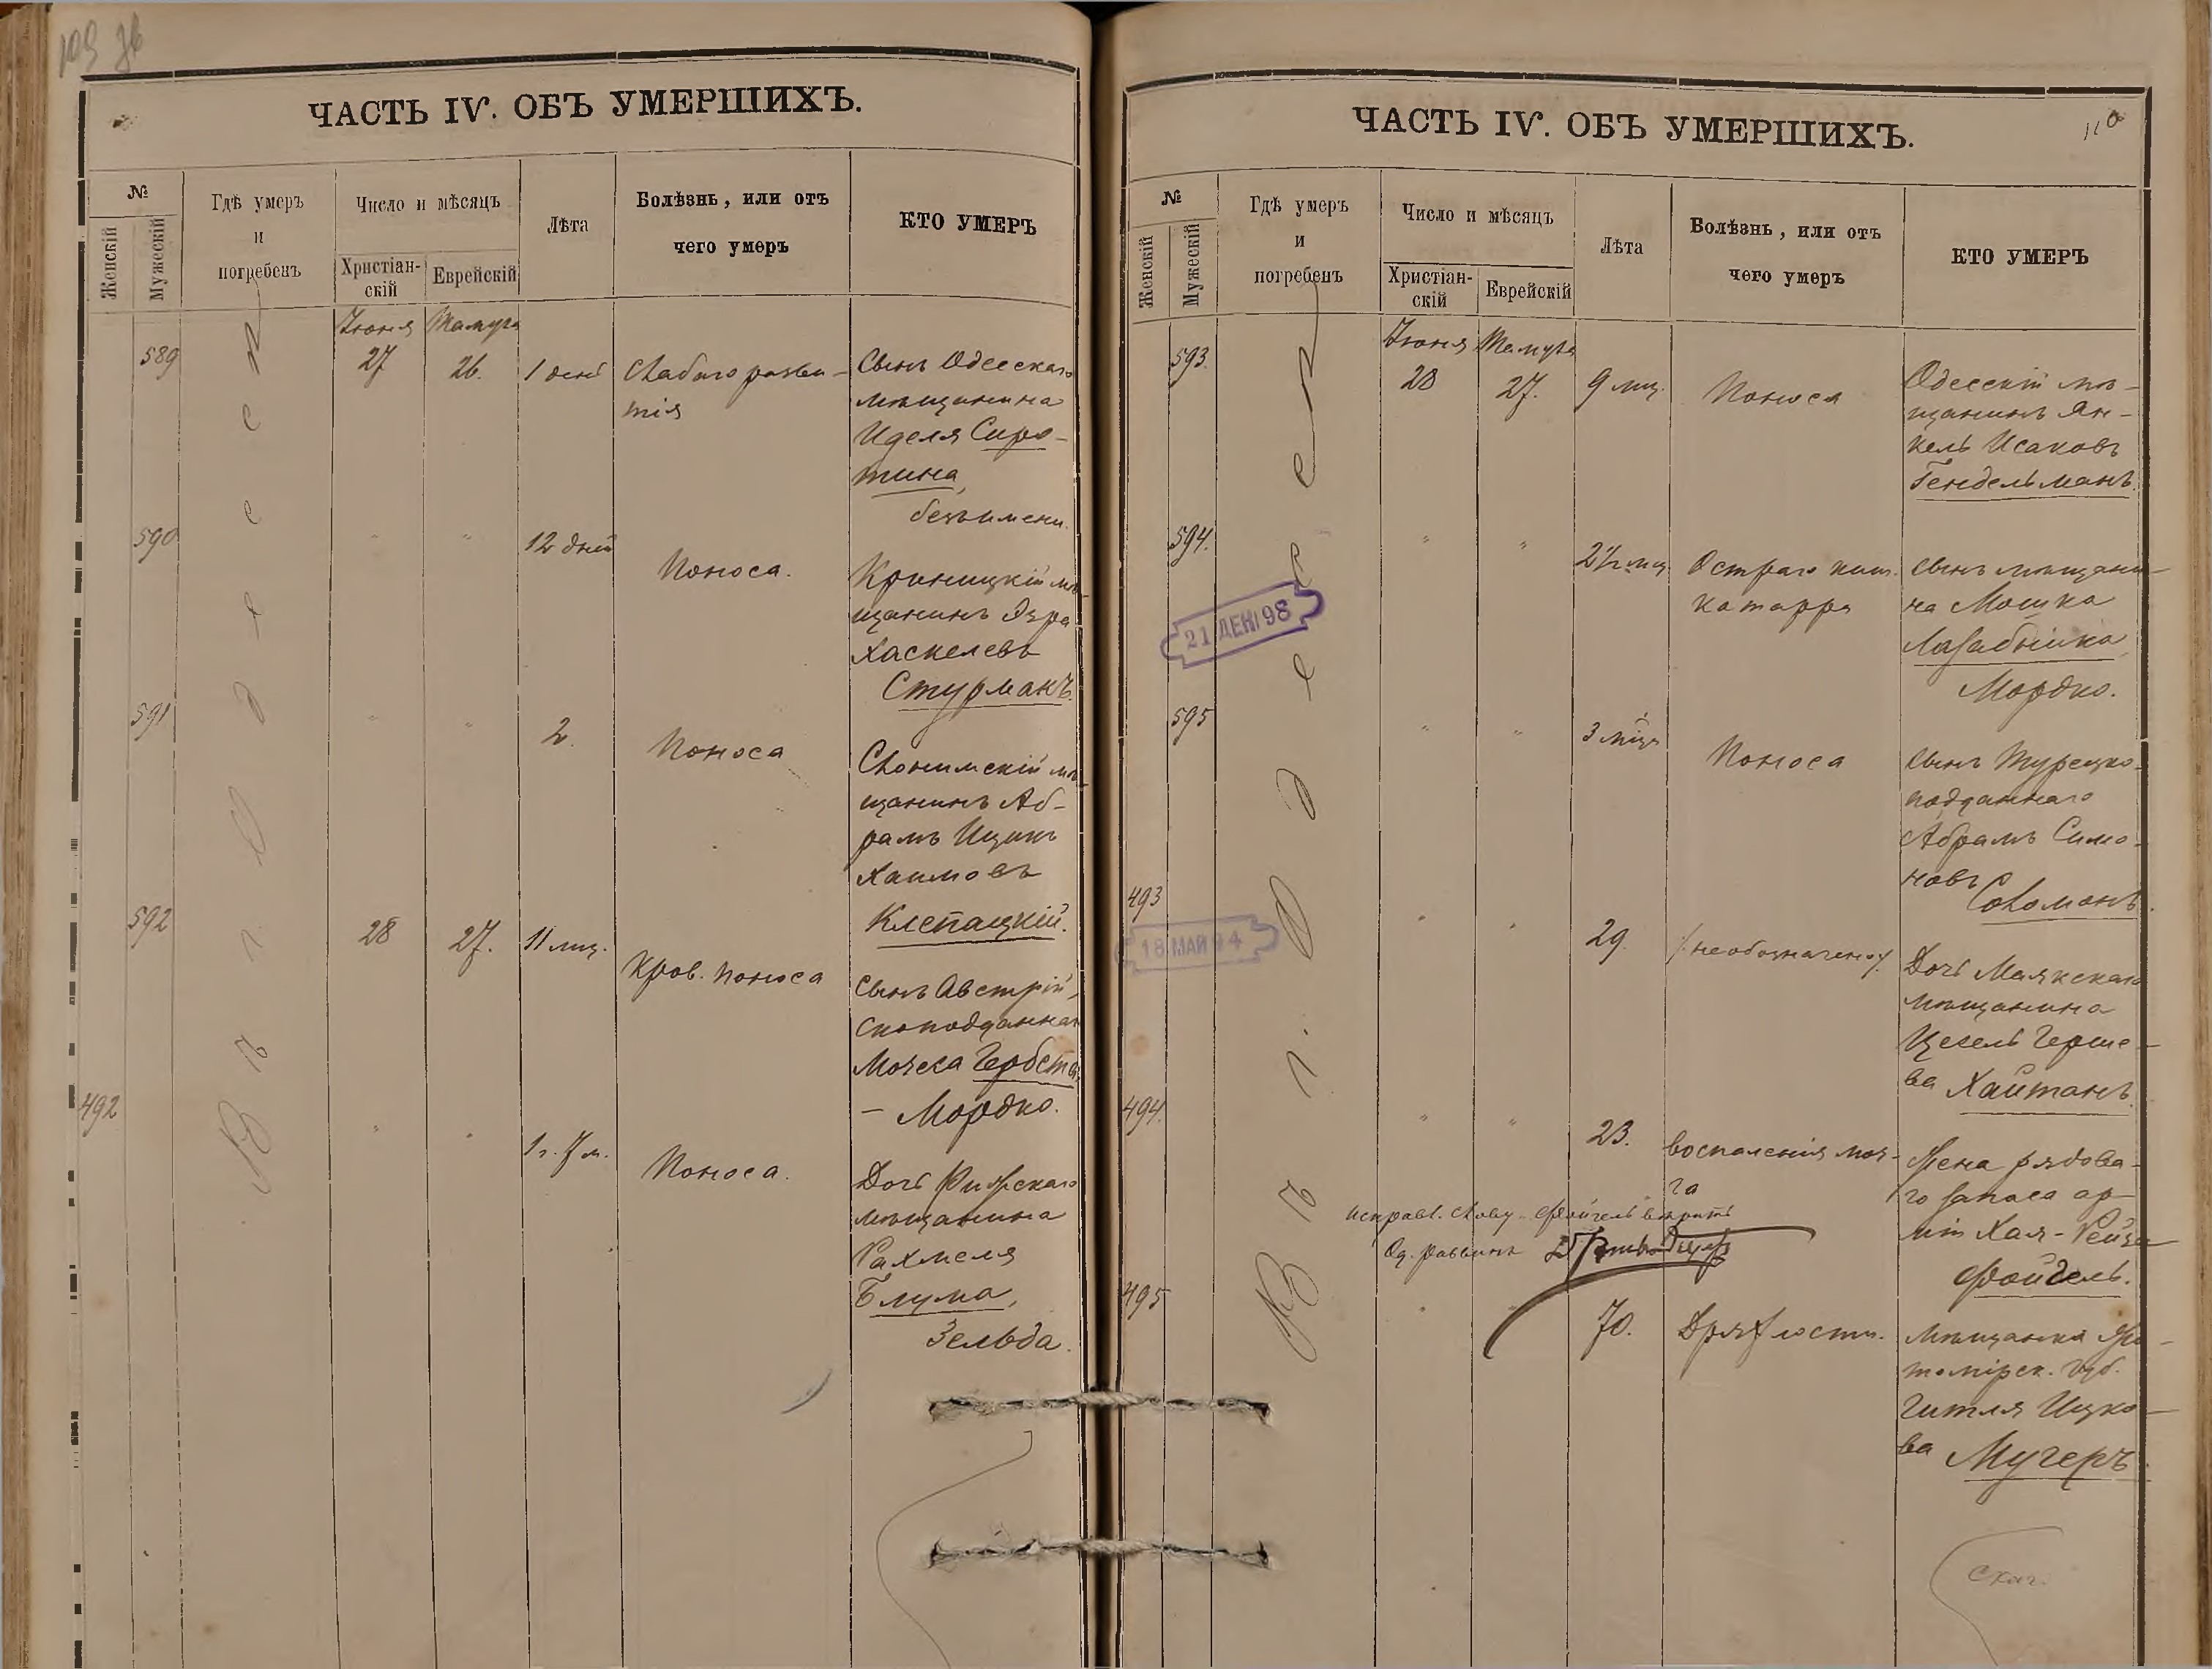 109 зв
ЧАСТЬ IV. ОБЪ УМЕРШИХЪ.
№
Женскій
Мужескій
Гдѣ умеръ
и
погребенъ
Число и мѣсяцъ
Христіан-
скій
Еврейскій
Лѣта
Болѣзнь, или отъ
чего умеръ
КТО УМЕРЪ
Въ г. Одессѣ
Іюня Тамуза
589 27 26. 1 день Слабаго разви-
тія
Сынъ Одесскаго
мѣщанина
Иделя Сиро-
тина,
безъ имени.
590 " " 12 дней Поноса.
Криницкій мѣ-
щанинъ Эзра
Хаскелевъ
Стурманъ.
591 " " 2. Поноса
Слонимскій мѣ-
щанинъ Аб-
рамъ Ицикъ
Хаимовъ
Клепацкій.
592 28 27. 11 мц. Кров. поноса
Сынъ Австрій-
скоподданнаго
Мотеса Гербста
— Мордко.
492 " " 1 г. 7 м. Поноса.
Дочь Рижскаго
мѣщанина
Рахмеля
Блума,
Зельда.
ЧАСТЬ IV. ОБЪ УМЕРШИХЪ.
110
№
Женскій
Мужескій
Гдѣ умеръ
и
погребенъ
Число и мѣсяцъ
Христіан-
скій
Еврейскій
Лѣта
Болѣзнь, или отъ
чего умеръ
КТО УМЕРЪ
Въ г. Одессѣ
Іюня Тамуза
593. 28 27. 9 мц. Поноса
Одесскій мѣ-
щанинъ Ян-
кель Исаковъ
Гендельманъ.
594. " " 2½ мц Остраго киш.
катарра
сынъ мѣщани-
на Мошка
Мордко.
21 ДЕК 98
595 " " 3 мца Поноса
сынъ Турецко-
подданнаго
Абрамъ Симо-
новъ
Соломонъ.
493 " " 29. /необозначено/.
18 МАЙ 94
Дочь Маякскаго
мѣщанина
Цесель Герше-
ва Хаитанъ.
494. " " 23. Воспаленія моз-
га
Жена рядова-
го запаса ар-
міи Хая-Рейза
Фойгель.
исправл. слову Фойгель вѣрить
Од. раввинъ
495 " " 70. Дряхлости.
Мѣщанка Жи-
томірск. губ.
Гитля Ицко-
ва Мучеръ.